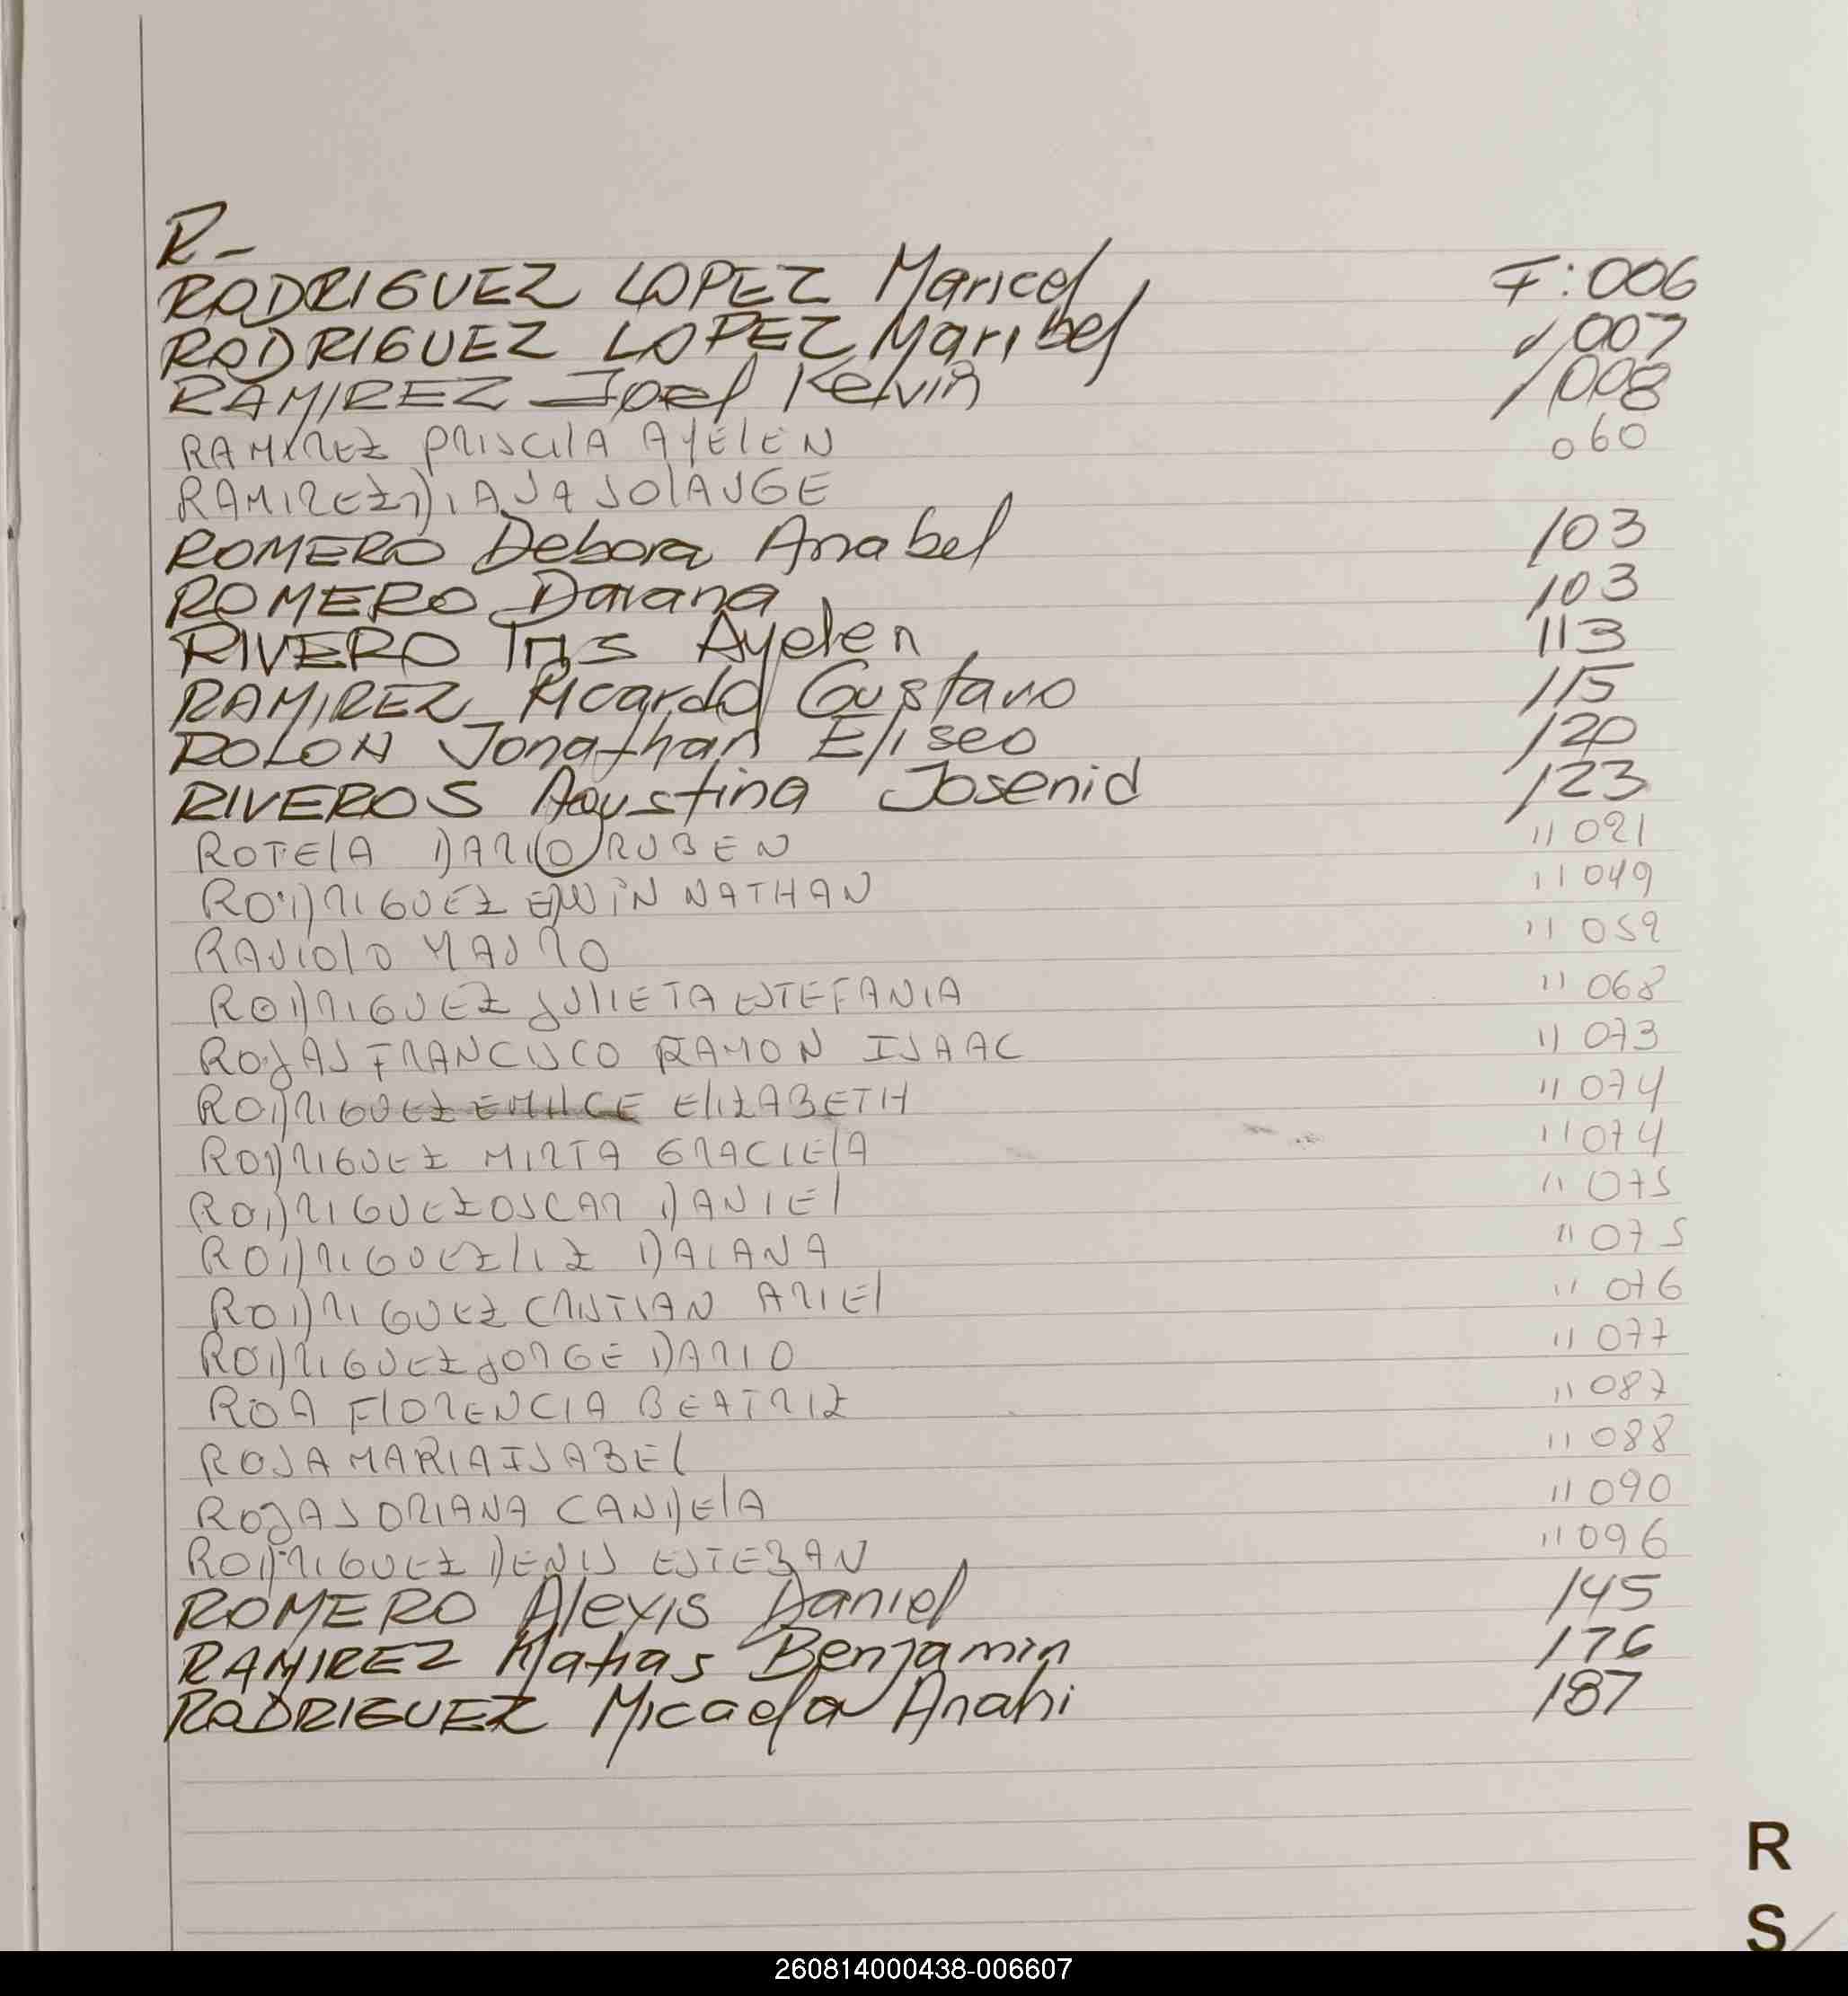 R-
RODRIGUEZ LOPEZ Maricel F:006
RODRIGUEZ LOPEZ Maribel / 007
RAMIREZ Joel Kelvin / 008
RAMIREZ PRISCILA AYELEN 060
RAMIREZ DIANA SOLANGE
ROMERO Debora Anabel 103
ROMERO Daiana 103
RIVERO Ayelen 113
RAMIREZ Ricardo Gustavo 115
ROLON Jonathan Eliseo 120
RIVEROS Agustina Josenid 123
ROTELA DARIO RUBEN 11 021
RODRIGUEZ EDWIN NATHAN 11 049
RAVIOLO MAURO 11 059
RODRIGUEZ JULIETA ESTEFANIA 11 068
ROJAS FRANCISCO RAMON ISAAC 11 073
RODRIGUEZ EMILCE ELIZABETH 11 074
RODRIGUEZ MIRTA GRACIELA 11 074
RODRIGUEZ OSCAR DANIEL 11 075
RODRIGUEZ LIZ DAIANA 11 075
RODRIGUEZ CRISTIAN ARIEL 11 076
RODRIGUEZ JORGE DARIO 11 077
ROA FLORENCIA BEATRIZ 11 087
ROSA MARIA ISABEL 11 088
ROJAS ORIANA CANDELA 11 090
RODRIGUEZ DENIS ESTEBAN 11 096
ROMERO Alexis Daniel 145
RAMIREZ Matias Benjamin 176
RODRIGUEZ Micaela Anahi 187
R
S
260814000438-006607